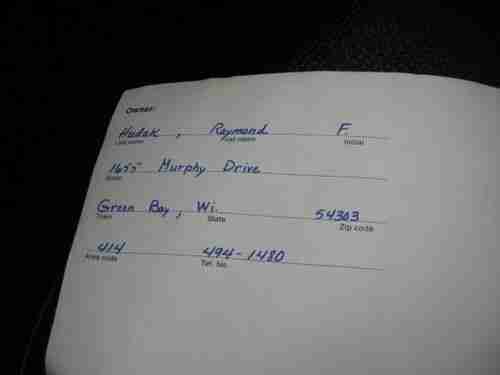 Owner:
Hudak, Raymond F.
Last name First name Initial
1655 Murphy Drive
Street
Green Bay, Wi. 54303
Town State Zip code
414 494-1480
Area code Tel. No.